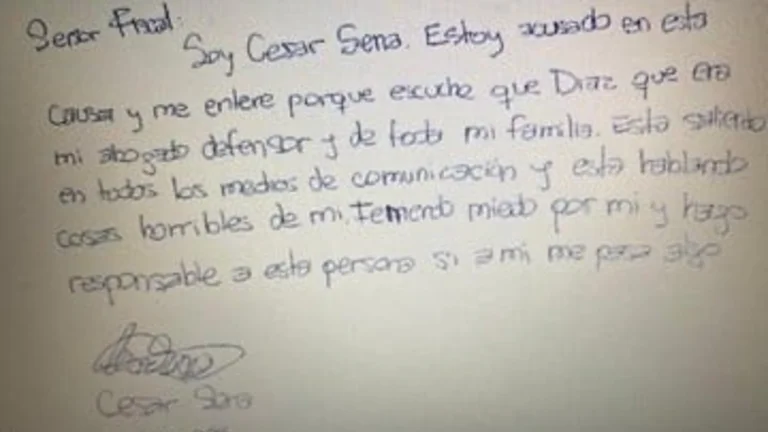 Señor Fiscal:
Soy Cesar Sena. Estoy acusado en esta
causa y me entere porque escuche que Diaz que era
mi abogado defensor y de toda mi familia. Esta saliendo
en todos los medios de comunicación y esta hablando
cosas horribles de mi. miedo por mi y hago
responsable a esta persona si a mi me pasa algo
Cesar Sena